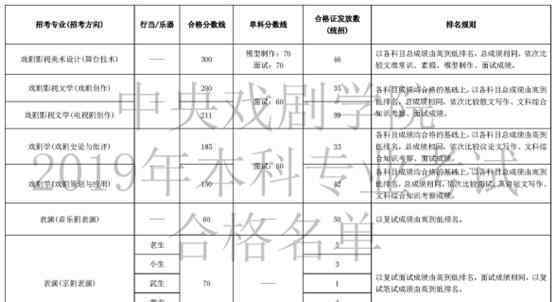 招考专业(招考方向)
行当/乐器
合格分数线
单科分数线
合格证发放数
(统招)
排名规则
戏剧影视美术设计(舞台技术)
——
300
模型制作：70
面试：70
以各科目总成绩由高到低排名。总成绩相同，依次比
较文史常识、素描、模型制作、面试成绩。
戏剧影视文学(戏剧创作)
——
35
以各科目成绩均合格的基础上，以各科目总成绩由高到
低排名，总成绩相同，依次比较散文写作、文科综合
知识考察、面试成绩。
戏剧影视文学(电视剧创作)
——
211
面试：60
戏剧学(戏剧史论与批评)
——
185
以各科目成绩均合格的基础上，以各科目总成绩由高到
低排名，总成绩相同，依次比较议论文写作、文科综
合知识考察、面试成绩。
戏剧学(戏剧策划与应用)
——
面试：60
文科综合知识考察成绩。
表演(音乐剧表演)
——
60
——
50
以复试成绩由高到低排名。
表演(京剧表演)
老生
小生
武生
70
5
3
1
以复试面试成绩由高到低排名，面试成绩相同，以复
试笔试成绩由高到低排名。
中央戏剧学院
2019年本科专业考试
合格名单